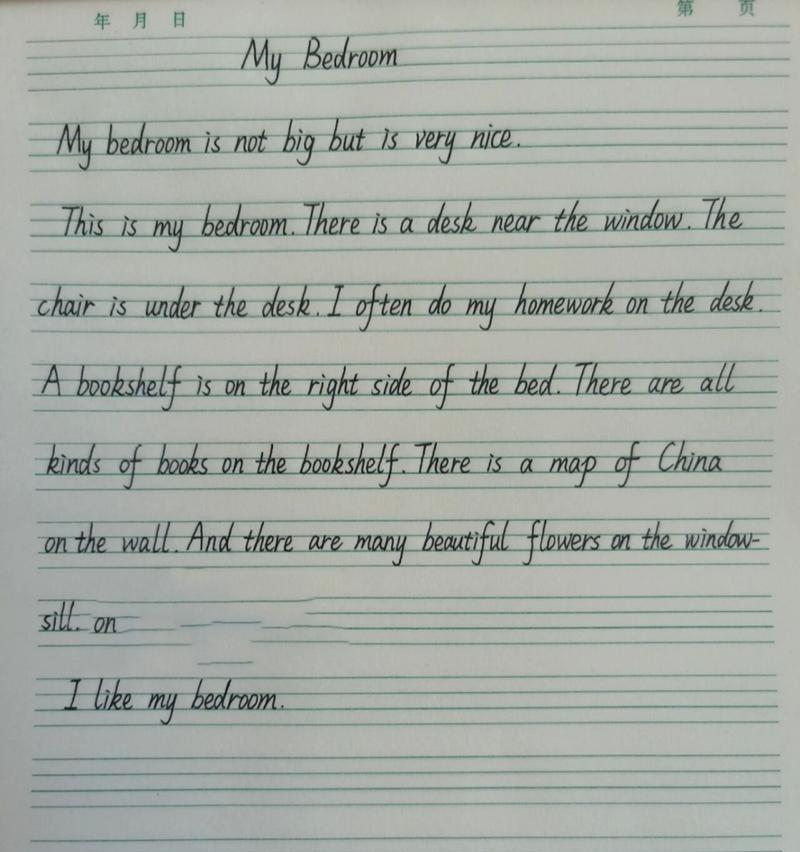 年 月 日 第 页
My Bedroom
My bedroom is not big but is very nice.
This is my bedroom. There is a desk near the window. The
chair is under the desk. I often do my homework on the desk.
A bookshelf is on the right side of the bed. There are all
kinds of books on the bookshelf. There is a map of China
on the wall. And there are many beautiful flowers on the window-
sill. on
I like my bedroom.